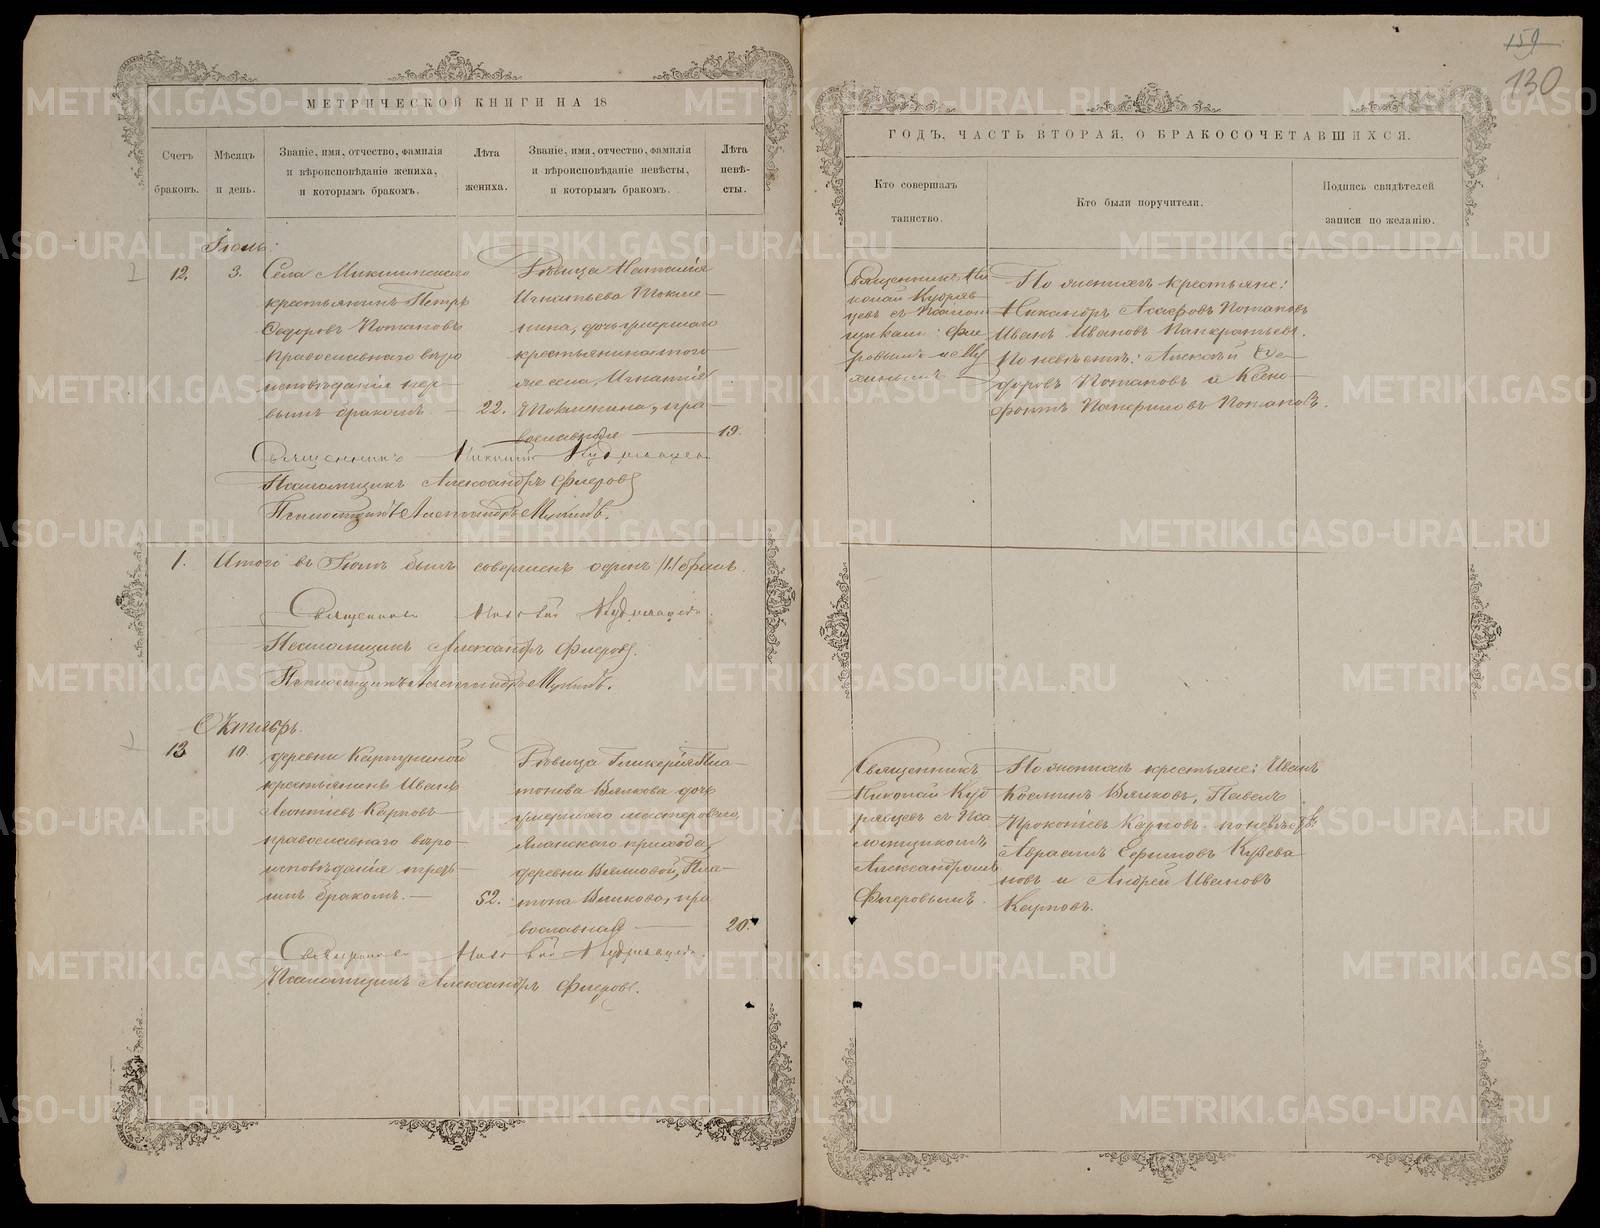 МЕТРИЧЕСКОЙ КНИГИ НА 18
Счетъ браковъ.
Мѣсяцъ и день.
Званіе, имя, отчество, фамилія и вѣроисповѣданіе жениха, и которымъ бракомъ.
Лѣта жениха.
Званіе, имя, отчество, фамилія и вѣроисповѣданіе невѣсты, и которымъ бракомъ.
Лѣта невѣ-сты.
Іюль.
12.
3.
Села
крестьянинъ Петръ
Ѳедоровъ Потаповъ
православнаго вѣро
исповѣданія пер-
вымъ бракомъ. —
22.
Дѣвица Наталія
Игнатьева
нина, дочь умершаго
крестьянина того
же села, Игнатія
пра-
вославная —
19.
Священникъ Николай Кудрявцевъ
Псаломщикъ Александръ Флеровъ
Псаломщикъ Александръ
1.
Итого въ Іюлѣ былъ совершенъ одинъ /1/ бракъ.
Священникъ Николай Кудрявцевъ.
Псаломщикъ Александръ Флеровъ.
Псаломщикъ Александръ
Октябрь.
13
10
деревни
крестьянинъ Иванъ
Леонтіевъ Карповъ
православнаго вѣро
исповѣданія треть-
имъ бракомъ. —
52.
Дѣвица Гликерія Пла-
тонова Вяткова дочь
умершаго мастероваго,
прихода,
деревни Вятковой, Пла-
тона Вяткова, пра
вославная —
20.
Священникъ Николай Кудрявцевъ.
Псаломщикъ Александръ Флеровъ.
159
130
ГОДЪ, ЧАСТЬ ВТОРАЯ, О БРАКОСОЧЕТАВШИХСЯ.
Кто совершалъ таинство.
Кто были поручители.
Подпись свидѣтелей записи по желанію.
Священникъ Ни
колай Кудряв
цевъ съ Псалом
щиками: Фле
ровымъ и
По женихѣ крестьяне:
Никандръ Потаповъ
Иванъ Ивановъ Панкратьевъ.
По невѣстѣ: Алексѣй Ѳе-
доровъ Потаповъ и Ксено-
фонтъ Панфиловъ Потаповъ.
Священникъ
Николай Куд
рявцевъ съ Пса
ломщикомъ
Александромъ
Флеровымъ.
По женихѣ крестьяне: Иванъ
Козминъ Вятковъ, Павелъ
Прокопіевъ Карповъ. по невѣстѣ:
Авраамъ Ефимовъ
новъ и Андрей Ивановъ
Карповъ.
METRIKI.GASO-URAL.RU